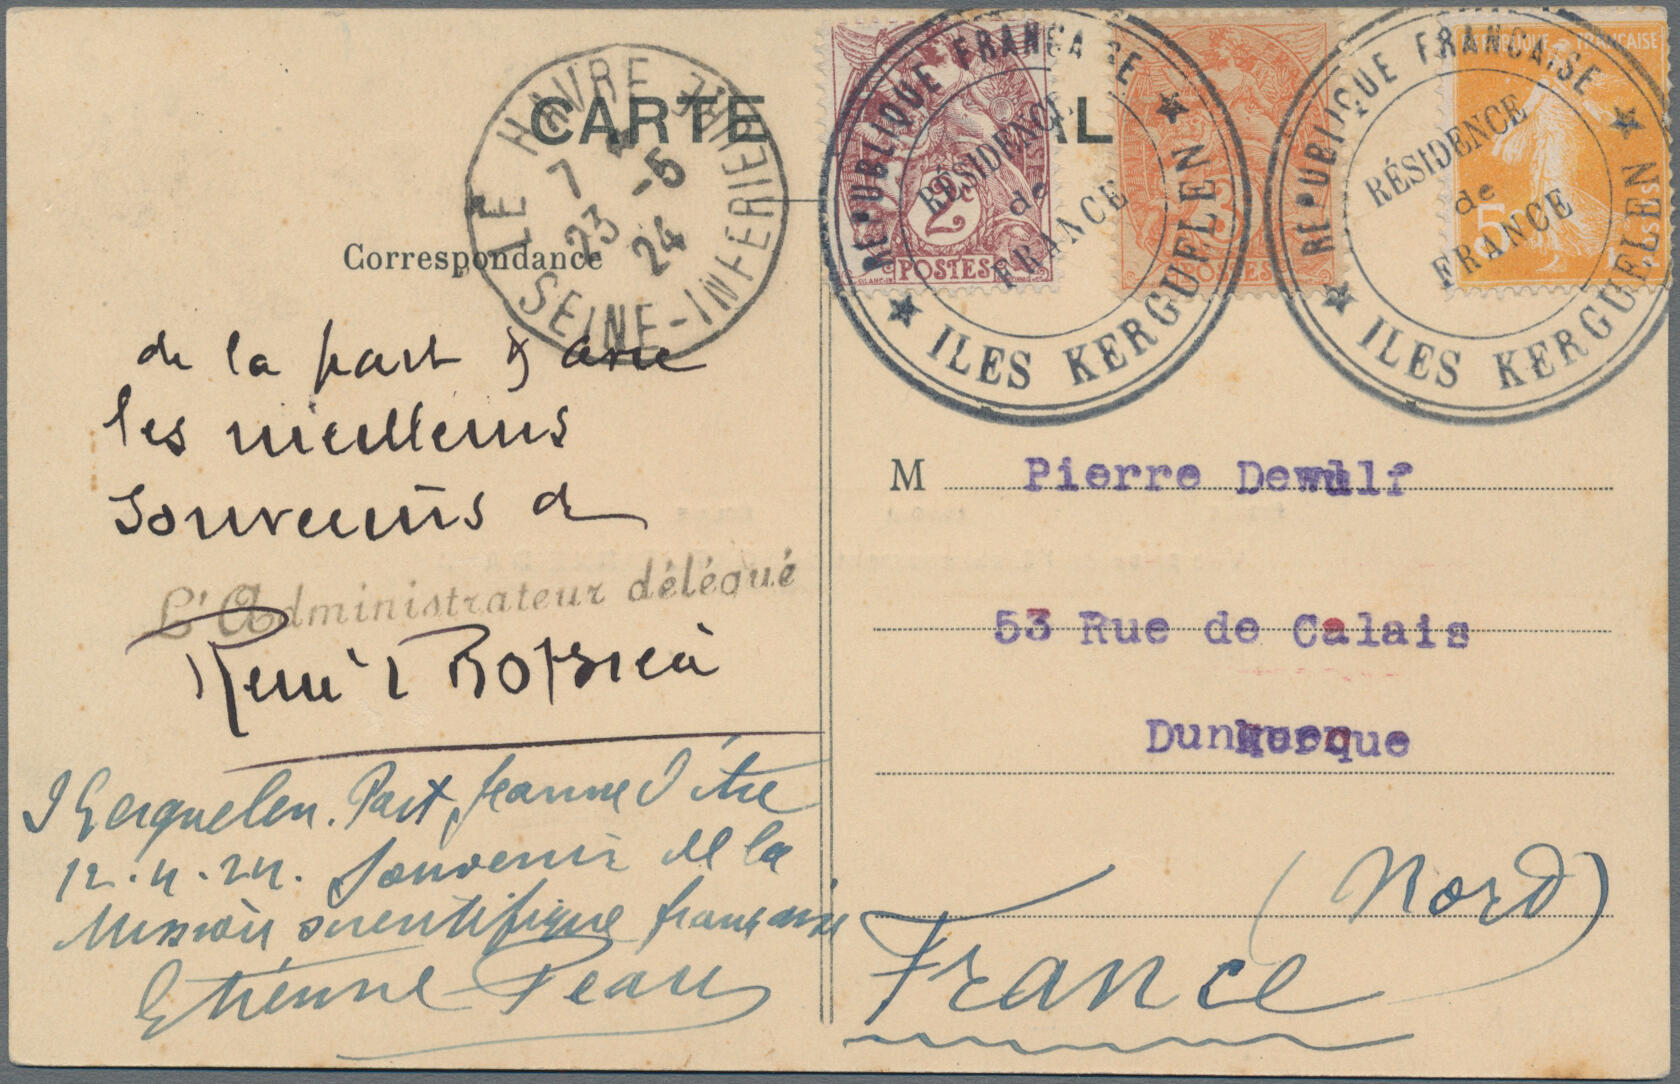 CARTE AL
LE HAVRE SEINE-INFERIEURE
7
23 -5
24
REPUBLIQUE FRANCAISE
RÉSIDENCE
de
FRANCE
ILES KERGUELEN
2c
POSTES
3
POSTES
REPUBLIQUE FRANCAISE
RÉSIDENCE
de
FRANCE
ILES KERGUELEN
REPUBLIQUE FRANÇAISE
5
POSTES
Correspondance
de la part & avec
les meilleurs
souvenirs de
L'Administrateur délégué
René Bossière
I Kerguelen. Port Jeanne d'Arc
12.4.24. Souvenir de la
Mission scientifique française
Etienne Peau
M Pierre Dewulf
53 Rue de Calais
Dunkerque
(Nord)
France